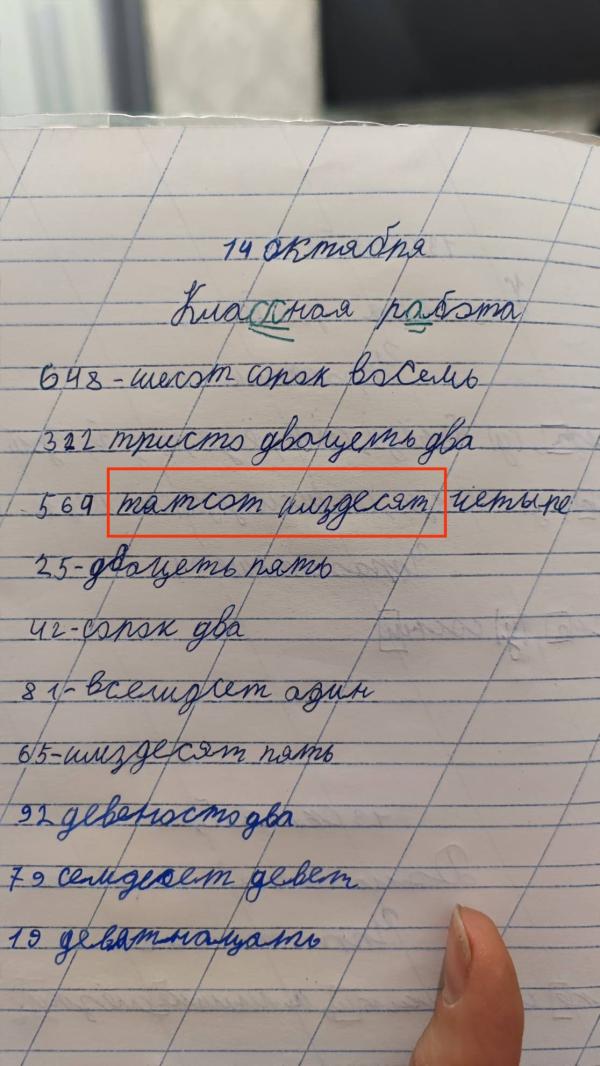 14 октября
Классная работа
648-шесот сорок восемь
322 тристо двацеть два
564 патсот шиздесят четыре
25-двацеть пять
42-сорок два
81-всемдсет один
65-шиздесят пять
92 девеносто два
79 семдесет девет
19 девятнацать